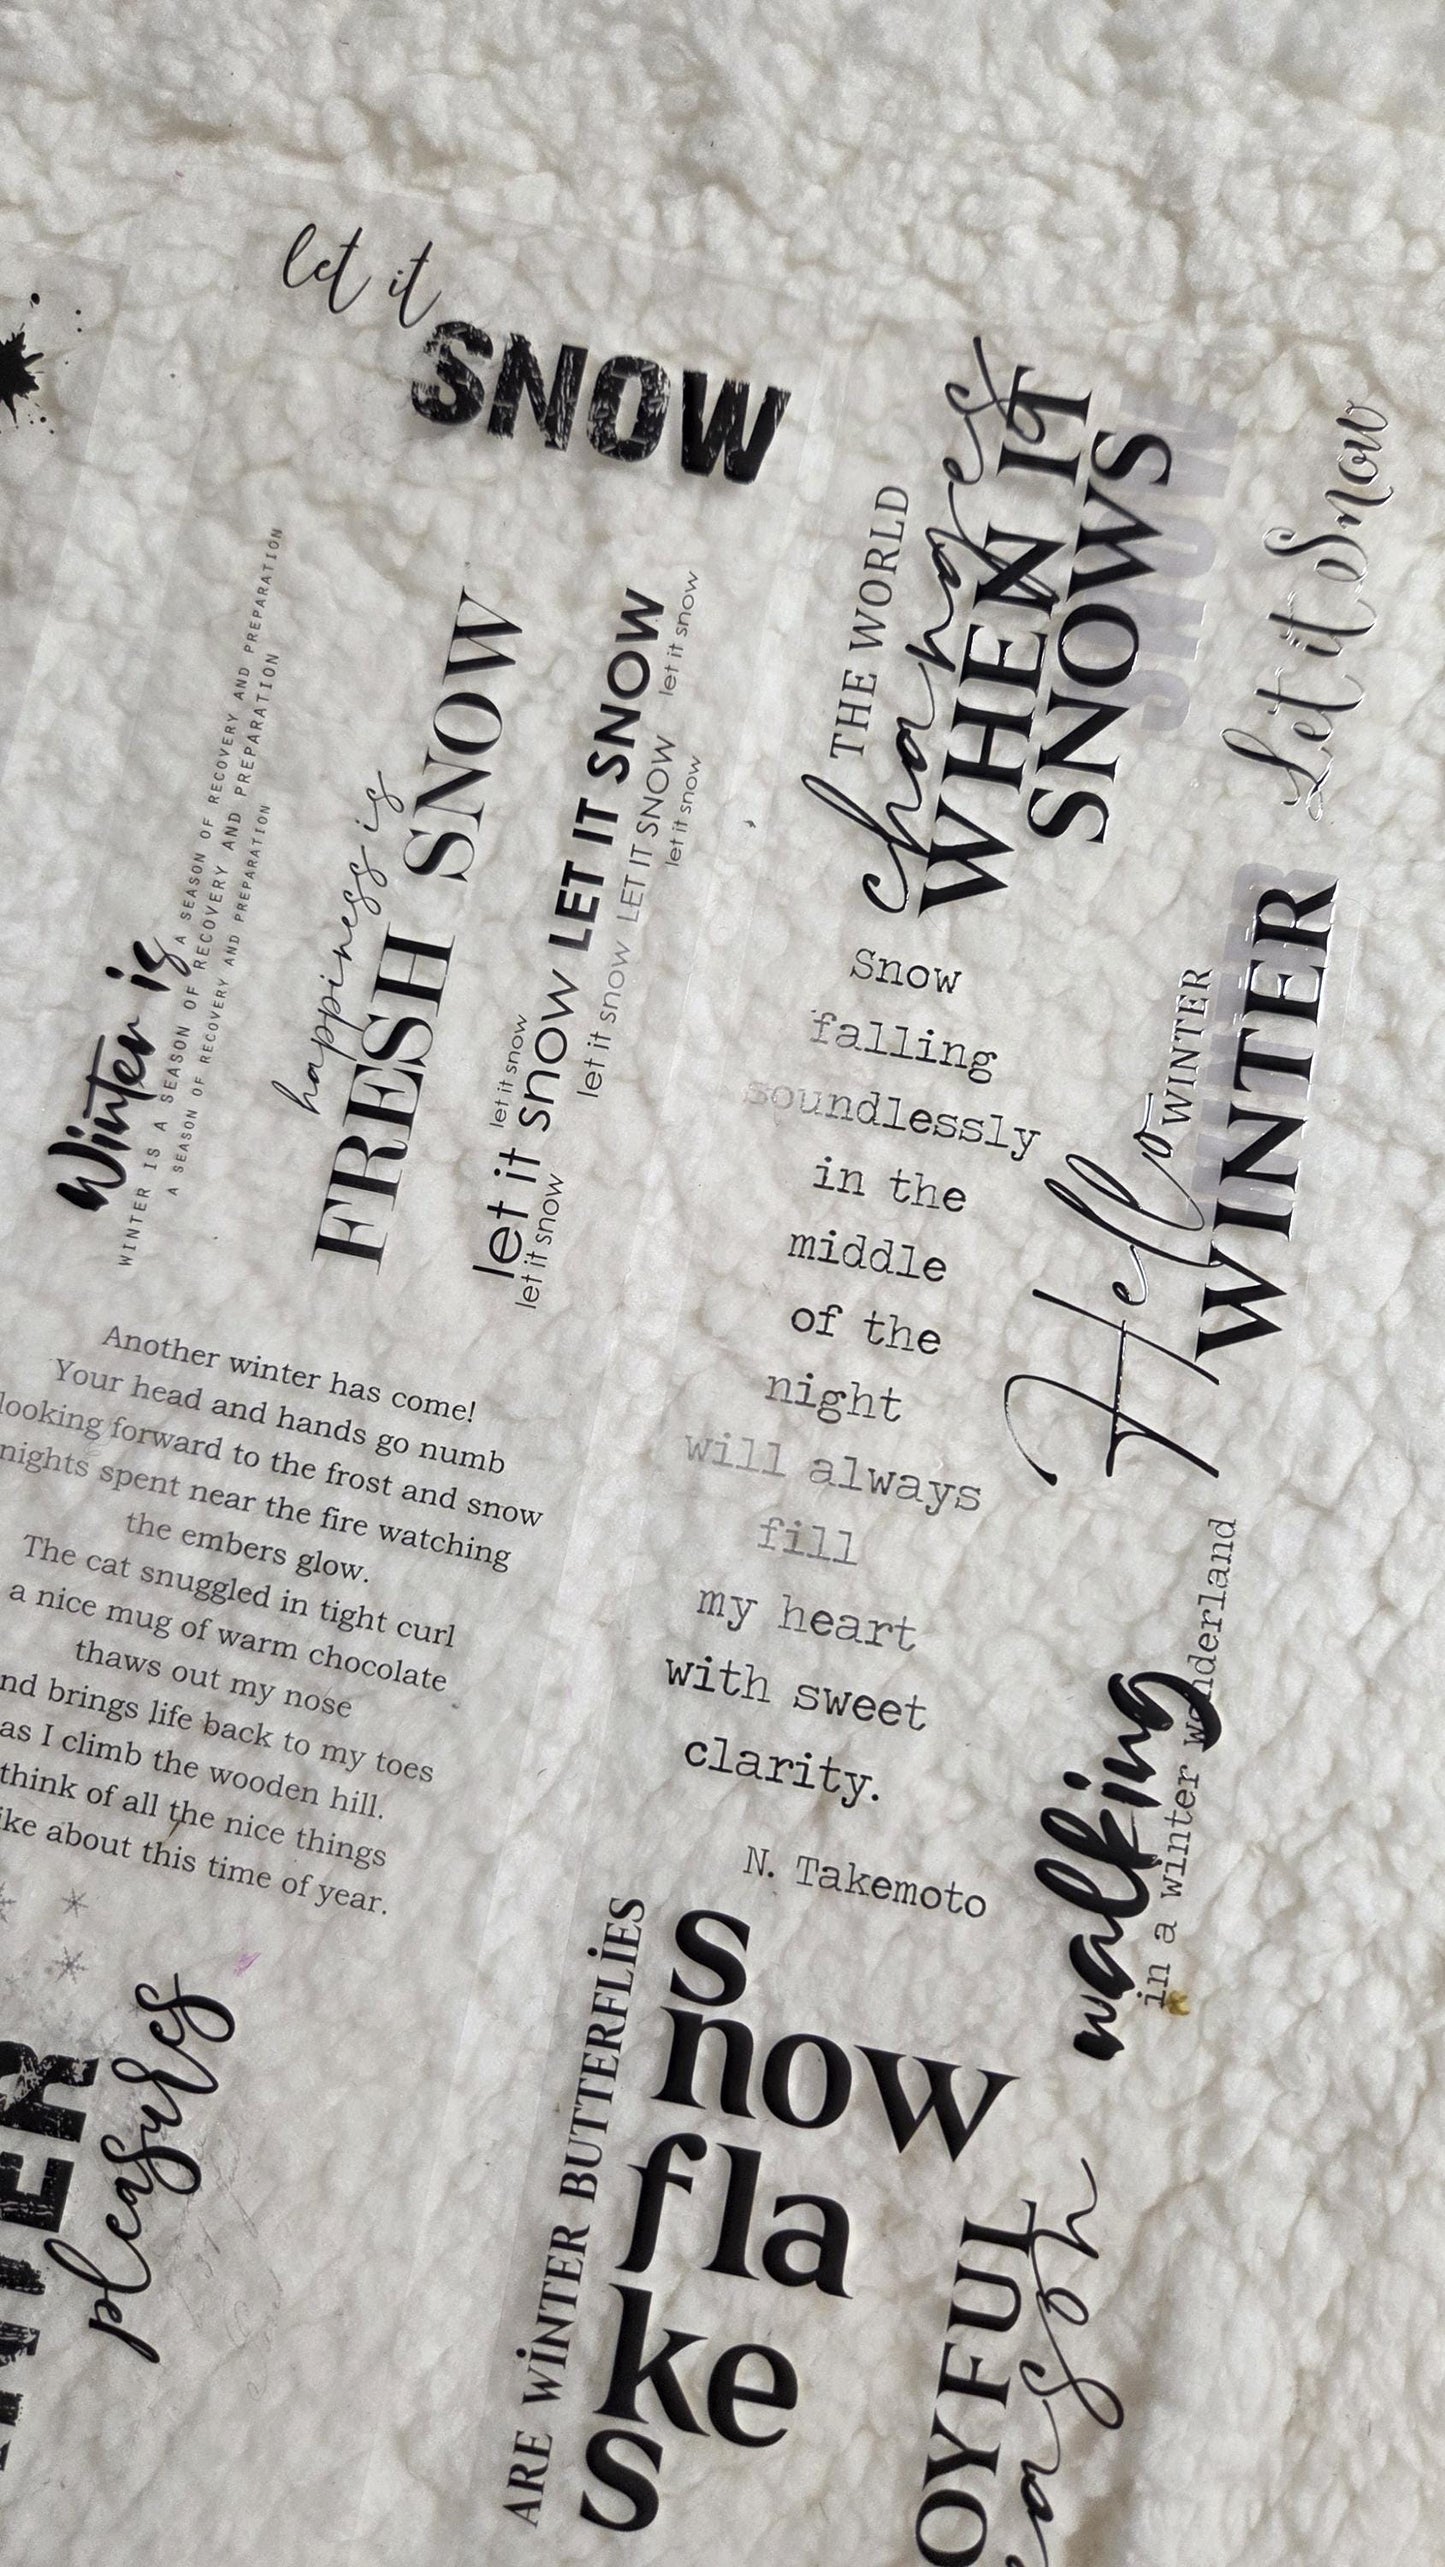 let it
SNOW
Winter is
A SEASON OF RECOVERY AND PREPARATION
WINTER IS A SEASON OF RECOVERY AND PREPARATION
A SEASON OF RECOVERY AND PREPARATION
happiness is
FRESH SNOW
let it snow
let it snow LET IT SNOW
let it snow
let it snow LET IT SNOW
let it snow
let it snow
Another winter has come!
Your head and hands go numb
looking forward to the frost and snow
nights spent near the fire watching
the embers glow.
The cat snuggled in tight curl
a nice mug of warm chocolate
thaws out my nose
nd brings life back to my toes
as I climb the wooden hill.
think of all the nice things
ike about this time of year.
pleasures
THE WORLD
changes
WHEN IT
SNOWS
Let it Snow
Snow
falling
soundlessly
in the
middle
of the
night
will always
fill
my heart
with sweet
clarity.
N. Takemoto
Hello
WINTER
WINTER
walking
in a winter wonderland
s
now
fla
ke
s
ARE WİNTER BUTTERFLİES
OYFUL